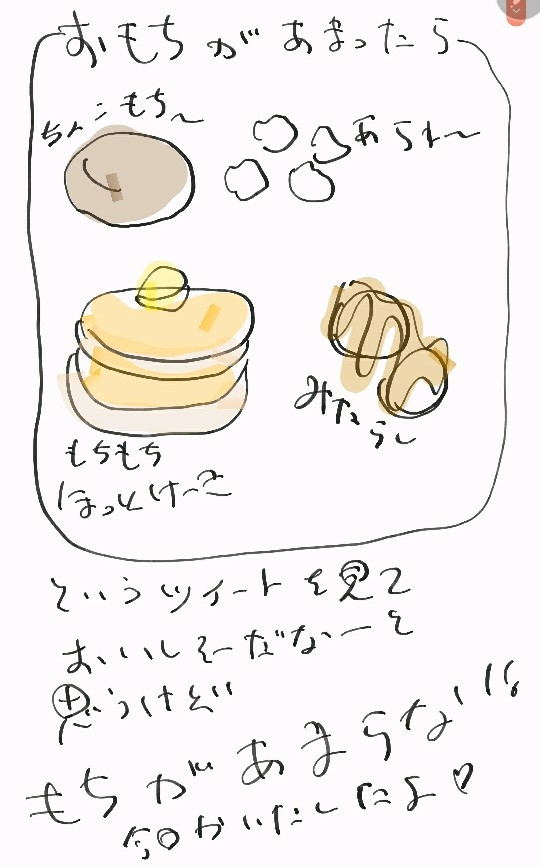 おもちがあまったら
ちょこもち〜
あられ〜
みたらし
もちもち
ほっとけーき
というツイートを見て
おいしそーだなーと
思うけど
もちがあまらない!!
今日かいたしたよ♡